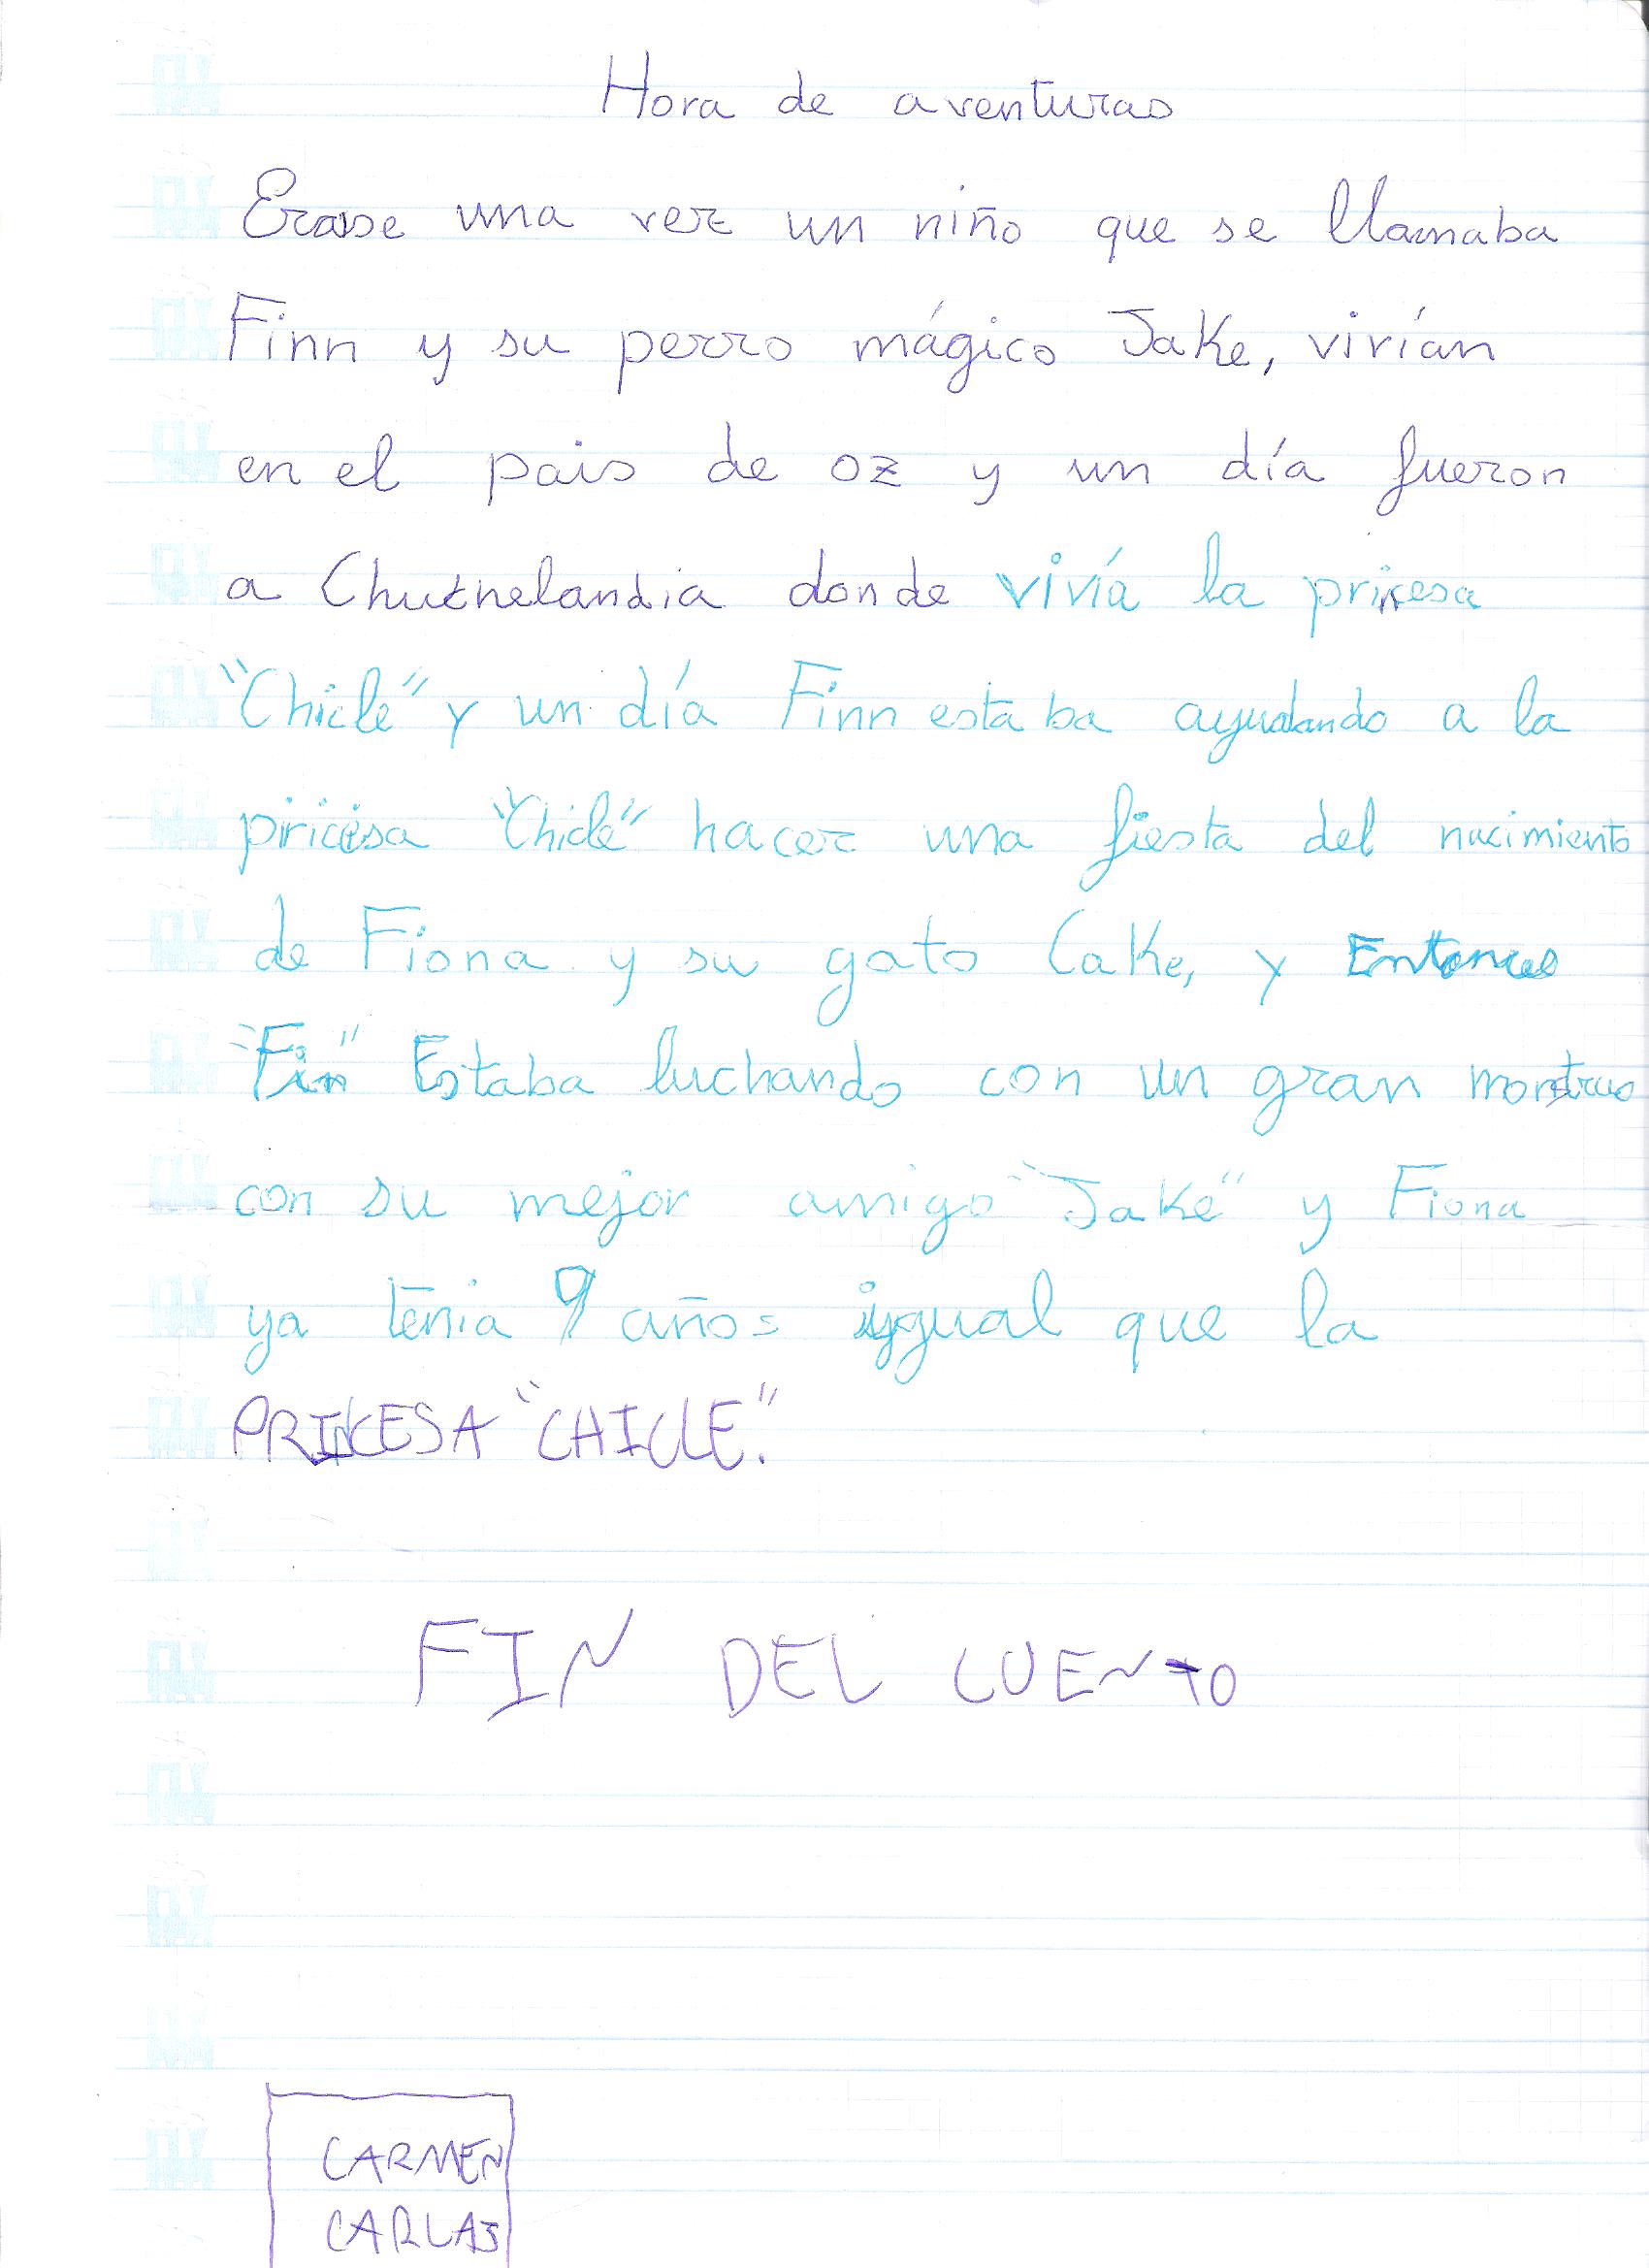 Hora de aventuras
Erase una vez un niño que se llamaba
Finn y su perro mágico Jake, vivían
en el pais de oz y un día fueron
a Chuchelandia donde vivía la princesa
"Chicle" y un día Finn estaba ayudando a la
pricesa "Chicle" hacer una fiesta del nacimiento
de Fiona y su gato Cake, y Entonces
"Fin" Estaba luchando con un gran monstruo
con su mejor amigo "Jake" y Fiona
ya tenia 9 años igual que la
PRINCESA "CHICLE".
FIN DEL CUENTO
CARMEN